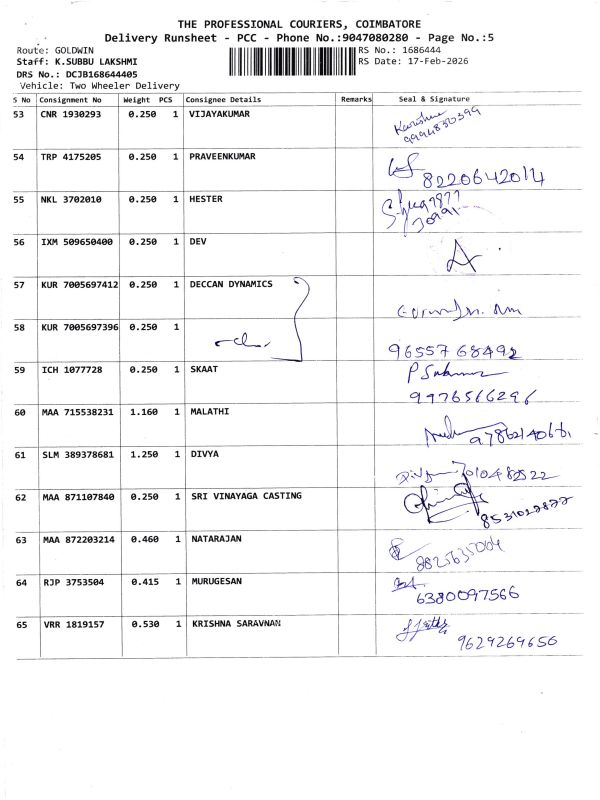 THE PROFESSIONAL COURIERS, COIMBATORE
Delivery Runsheet - PCC - Phone No.:9047080280 - Page No.:5
Route: GOLDWIN RS No.: 1686444
Staff: K.SUBBU LAKSHMI RS Date: 17-Feb-2026
DRS No.: DCJB168644405
Vehicle: Two Wheeler Delivery
S No Consignment No Weight PCS Consignee Details Remarks Seal & Signature
53 CNR 1930293 0.250 1 VIJAYAKUMAR
54 TRP 4175205 0.250 1 PRAVEENKUMAR
8220642014
55 NKL 3702010 0.250 1 HESTER
56 IXM 509650400 0.250 1 DEV
57 KUR 7005697412 0.250 1 DECCAN DYNAMICS
58 KUR 7005697396 0.250 1
9655768492
59 ICH 1077728 0.250 1 SKAAT
9976566296
60 MAA 715538231 1.160 1 MALATHI
61 SLM 389378681 1.250 1 DIVYA
62 MAA 871107840 0.250 1 SRI VINAYAGA CASTING
63 MAA 872203214 0.460 1 NATARAJAN
8825635004
64 RJP 3753504 0.415 1 MURUGESAN
6380097566
65 VRR 1819157 0.530 1 KRISHNA SARAVNAN
9629269656